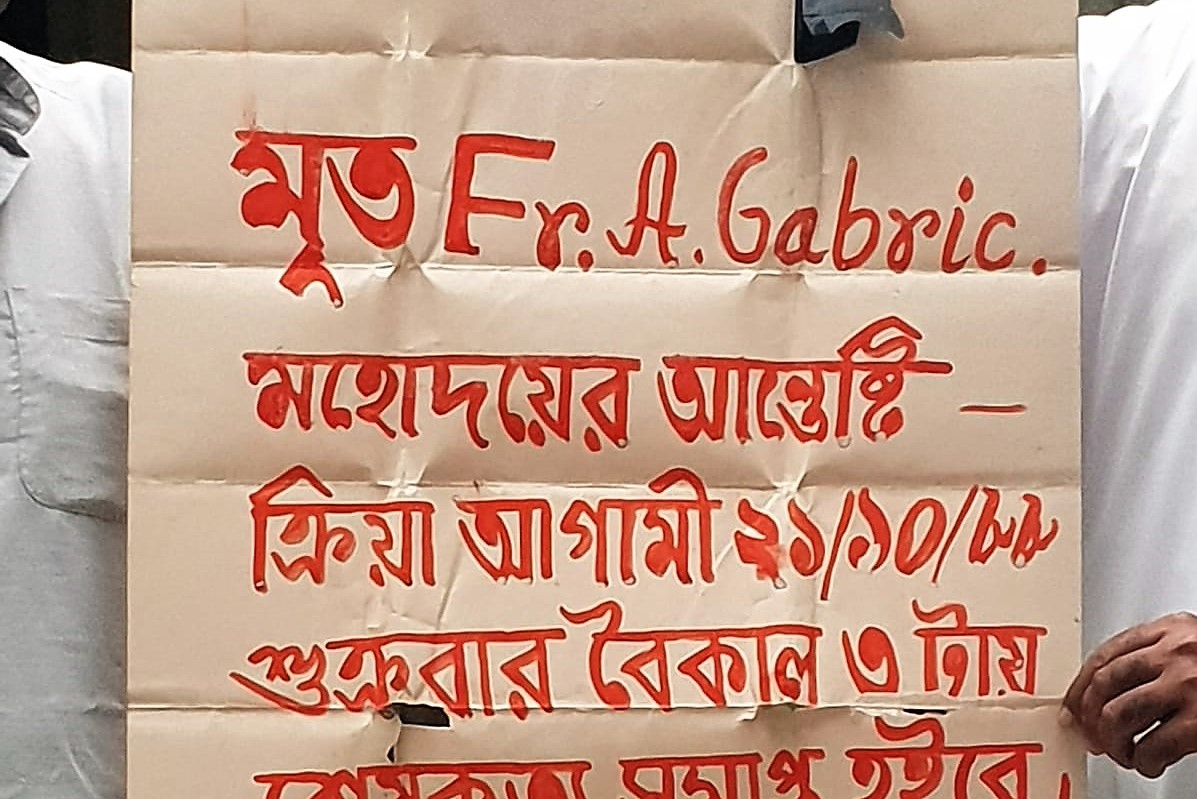 মৃত Fr. A. Gabric.
মহোদয়ের আন্তেষ্টি —
ক্রিয়া আগামী ২১/১০/৮৮
শুক্রবার বৈকাল ৩ টায়
শেষকৃত্য সমাপ্ত হইবে।